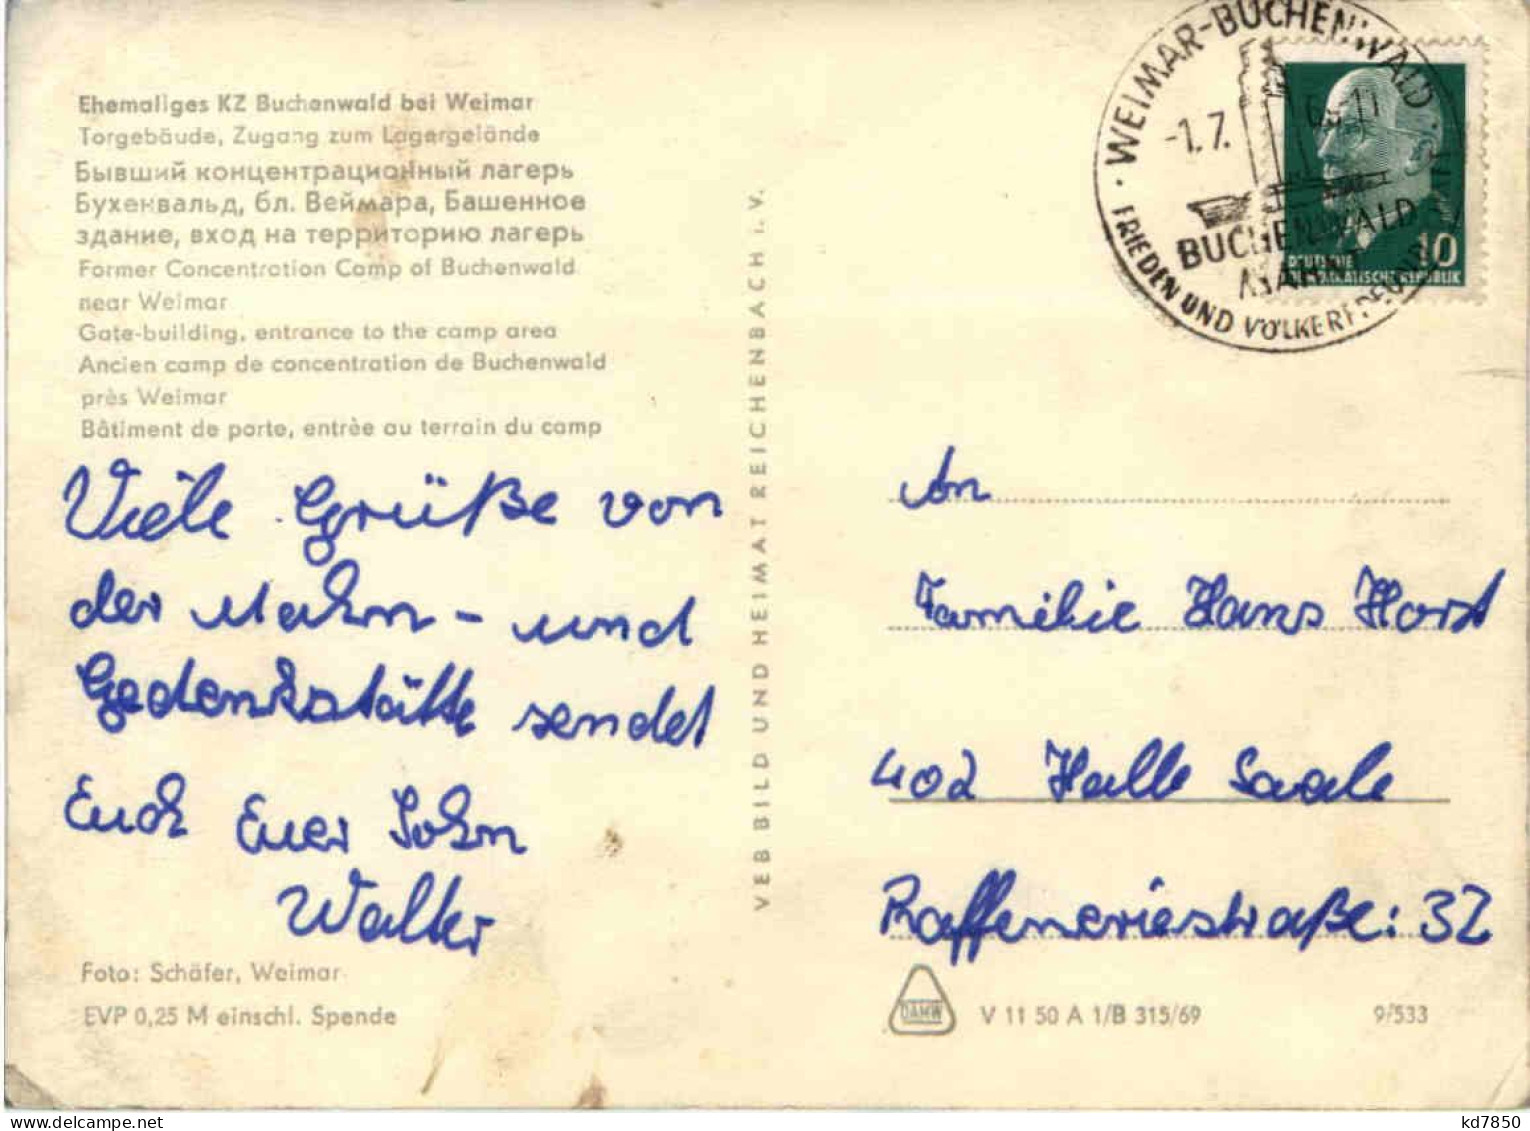 Ehemaliges KZ Buchenwald bei Weimar
Torgebäude, Zugang zum Lagergelände
Бывший концентрационный лагерь
Бухенвальд, бл. Веймара, Башенное
здание, вход на территорию лагерь
Former Concentration Camp of Buchenwald
near Weimar
Gate-building, entrance to the camp area
Ancien camp de concentration de Buchenwald
près Weimar
Bâtiment de porte, entrèe au terrain du camp
Viele Grüße von
der Mahn- und
Gedenkstätte sendet
Euch Euer Sohn
Walter
Foto: Schäfer, Weimar
EVP 0,25 M einschl. Spende
VEB BILD UND HEIMAT REICHENBACH I. V.
WEIMAR-BUCHENWALD
-1.7.
BUCHENWALD
MAHNT
FRIEDEN UND VÖLKERFREUND
10
DEUTSCHE
DEMOKRATISCHE REPUBLIK
An
Familie Hans Horst
402 Halle Saale
Raffeneriestraße: 32
DAMW
V 11 50 A 1/B 315/69
9/533
kd7850